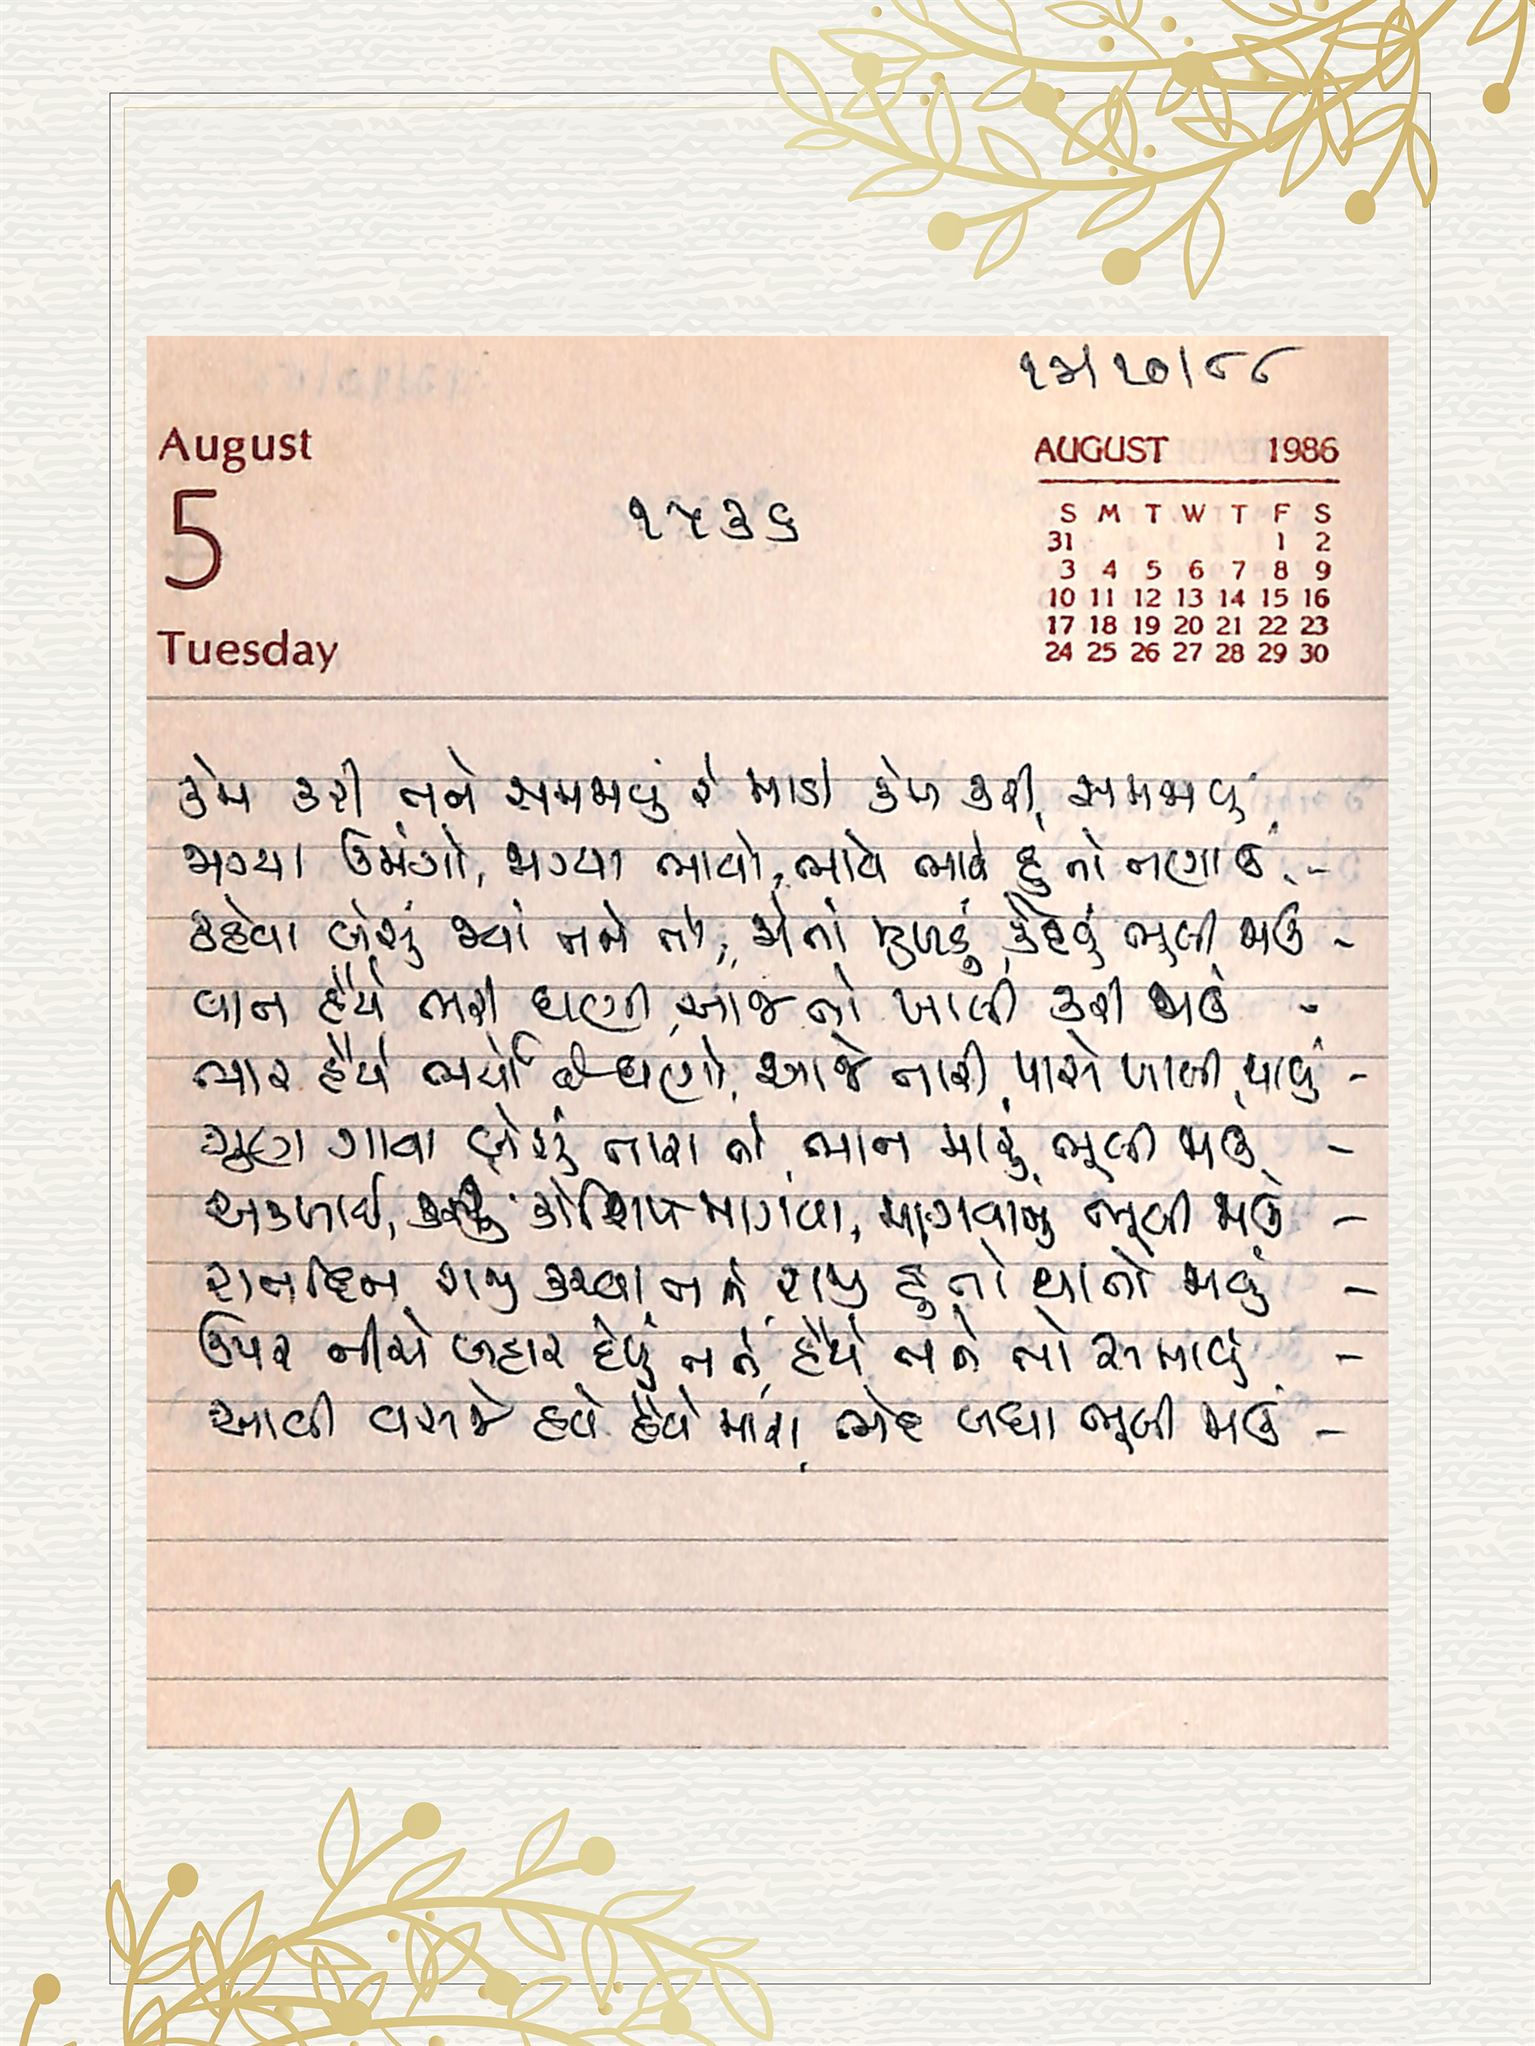 ૧૩/૧૦/૮૮
August
5
Tuesday
૧૫૩૬
AUGUST 1986
S M T W T F S
31 1 2
3 4 5 6 7 8 9
10 11 12 13 14 15 16
17 18 19 20 21 22 23
24 25 26 27 28 29 30
કેમ કરી તને સમજાવું રે માડી કેમ કરી, સમજાવું
જાગ્યા ઉમંગો, જાગ્યા ભાવો, ભાવે ભાવે હું તો તણાઉં -
કહેવા બેસું જ્યાં તને તો, મેંતો કેટલું કહેવું ભૂલી જાઉં -
વાત હૈયે ભરી ઘણી, આજ તો ખાલી કરી જાઉં -
ભાર હૈયે ભર્યો છે ઘણો, આજે તારી પાસે ખાલી થાવું -
ગુણ ગાવા બેસું તારા તો, ભાન મારું ભૂલી જાઉં -
અકળાઈ, કરું કોશિષ માગવા, માગવાનું ભૂલી જાઉં -
રાતદિન રાજી કરવા તને, રાજી હું તો થાતો જાવું -
ઉપર નીચે બહાર દેખું તને, હૈયે તને તો સમાવું -
આવી વસજે હવે હૈયે મારા, ભેદ બધા ભૂલી જાઉં -